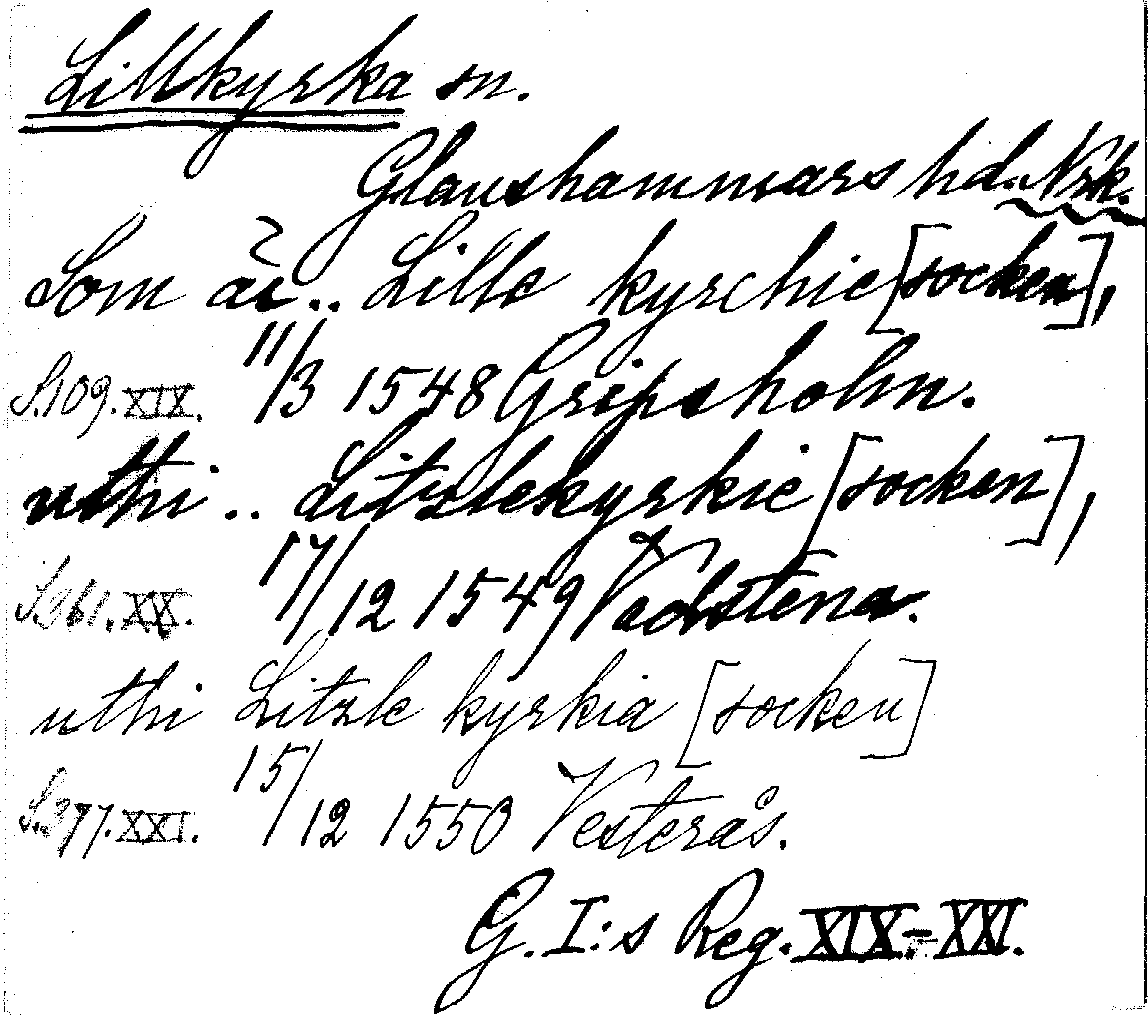 Lillkyrka sn.
Glanshammars hd. Nrk.
Som är.. Lille kyrchie [socken],
S.109.XIX. 11/3 1548 Gripsholm.
uthi .. Litzlekyrkie [socken],
S.361.XX. 17/12 1549 Vadstena.
uthi Litzle kyrkia [socken]
S.377.XXI. 15/12 1550 Vesterås.
G. I:s Reg. XIX.-XXI.